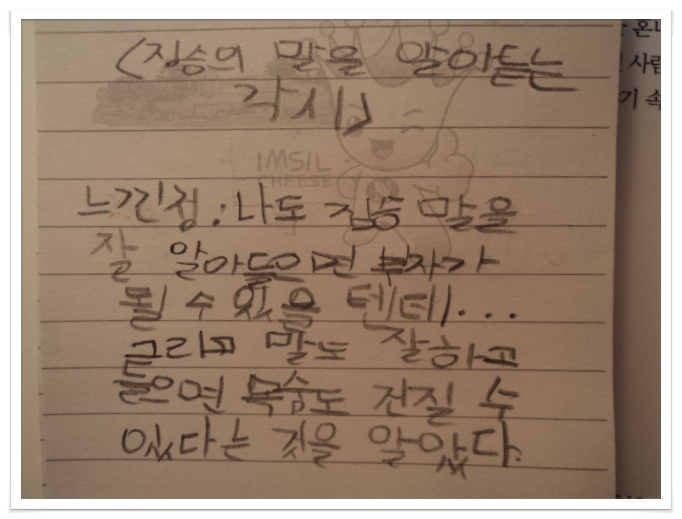 <짐승의 말을 알아듣는
각시>
IMSIL
CHEESE
느낀점 : 나도 짐승 말을
잘 알아들으면 부자가
될 수 있을 텐데...
그리고 말도 잘하고
들으면 목숨도 건질 수
있다는 것을 알았다.
사람
기 속